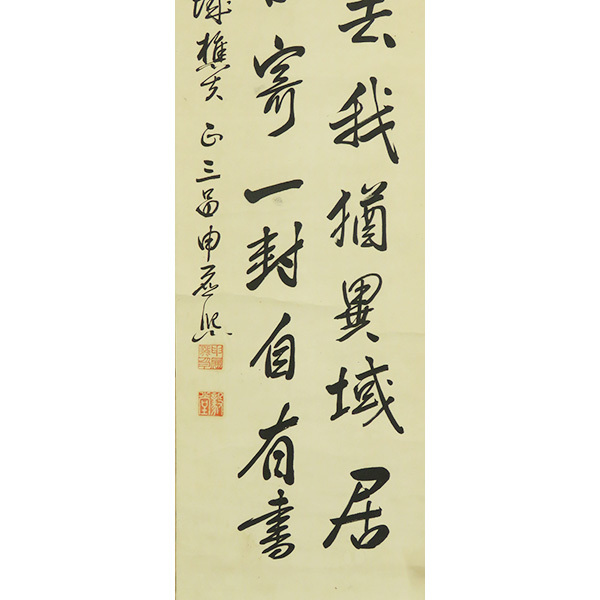 去我猶異域居
寄一封自有書
城樵夫正三品申應熙